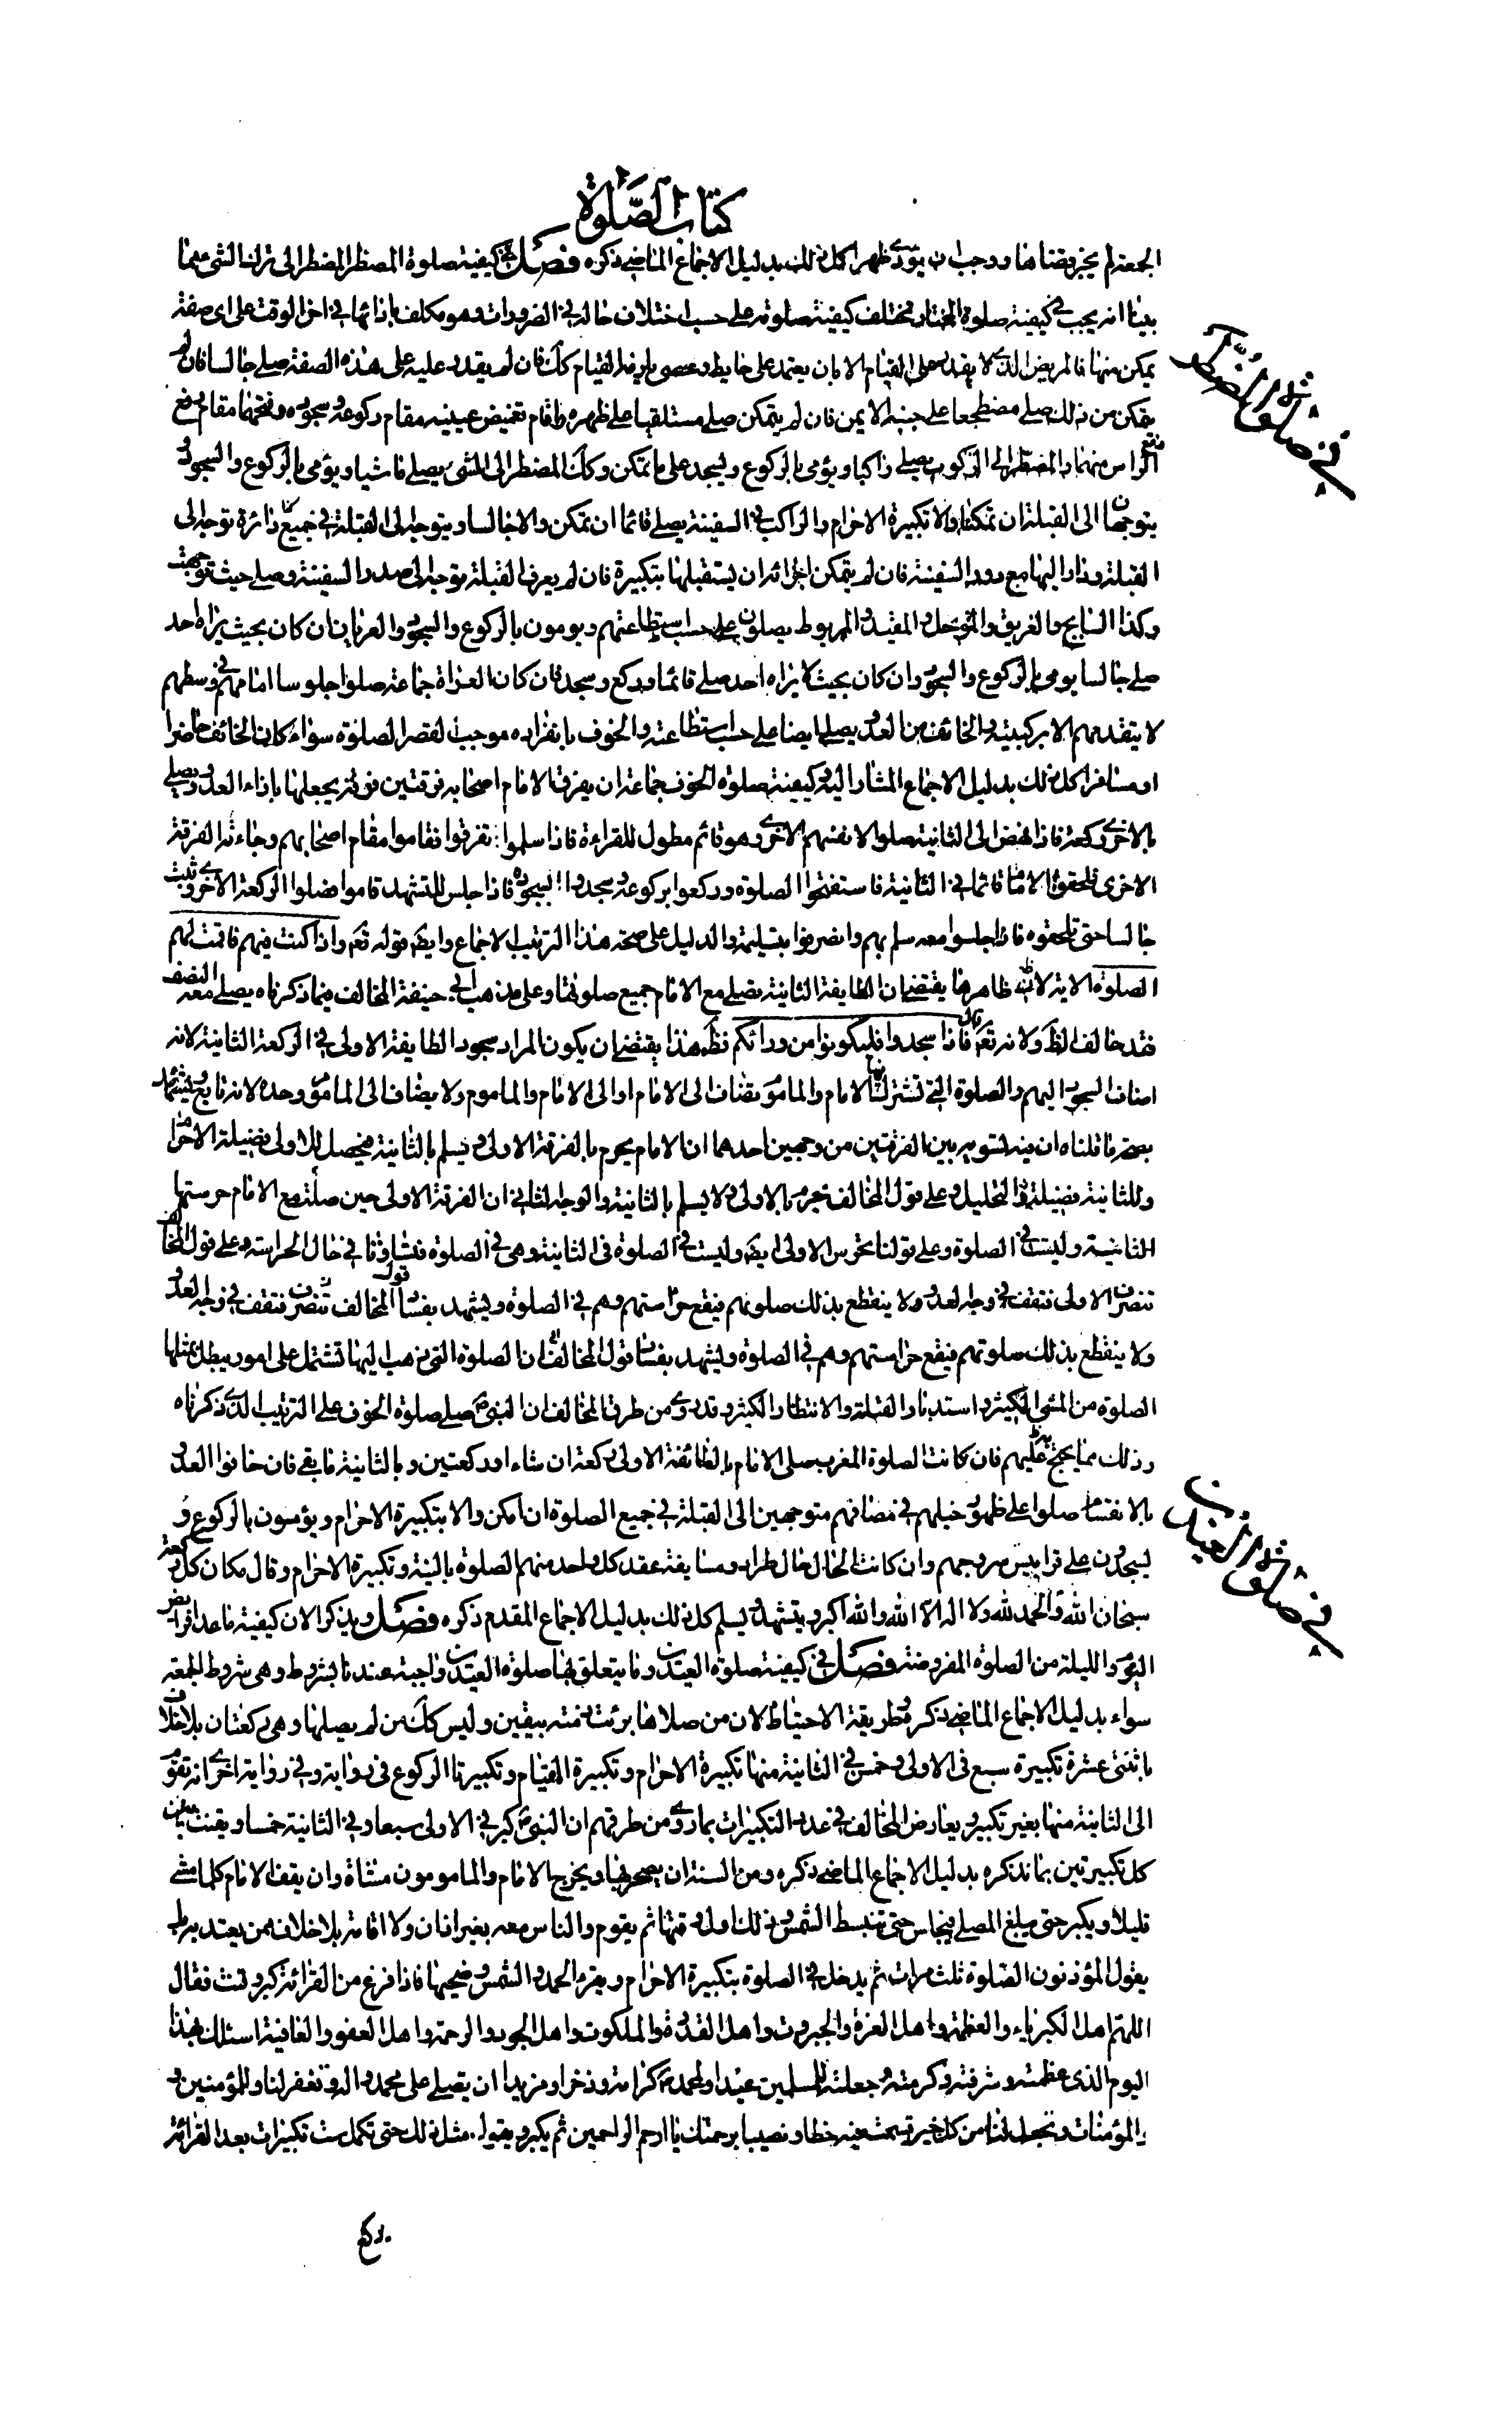 كتاب الصلوة
الجمعة لم يجز قضاها ووجب ان يؤدى ظهرا كل ذلك بدليل الاجماع الماضى ذكره فصل فى كيفية صلوة المضطر المضطر الى ترك الشى مما
بينا انه يجب فى كيفية صلوة المختار تختلف كيفية صلوته على حسب اختلاف حاله فى الضرورات وهو مكلف باذائها فى اخر الوقت على اى صفة
يمكن منها فالمريض الذى لا يقدر على القيام الا بان يعتمد على حايط وعصى يلزمه القيام كك فان لم يقدر عليه على هذه الصفة صلى جالسا فان لم
يتمكن من ذلك صلى مضطجعا على جنبه الايمن فان لم يتمكن صلى مستلقيا على ظهره واقام تغميض عينيه مقام ركوعه وسجوده وفتحهما مقام رفع
الراس منهما والمضطر الى الركوب يصلى راكبا ويؤمى بالركوع ويسجد على ما تمكن وكك المضطر الى المشى يصلى ماشيا ويؤمى بالركوع والسجود و
يتوجهان الى القبلة ان تمكنا والا بتكبيرة الاحرام والراكب فى السفينة يصلى قائما ان تمكن والا جالسا ويتوجه الى القبلة فى جميع دائرة توجه الى
القبلة ودار اليها مع دور السفينة فان لم يتمكن اجزائه ان يستقبلها بتكبيرة فان لم يعرف القبلة توجه الى صدر السفينة وصلى حيث توجهت
وكذا السابح والغريق والمتوحل والمقيد والمربوط يصلون على حسب استطاعتهم ويومون بالركوع والسجود والعريان ان كان بحيث يراه احد
صلى جالسا يومى بالركوع والسجود وان كان بحيث لا يراه احد صلى قائما وركع وسجد فان كان العراة جماعة صلوا جلوسا امامهم فى وسطهم
لا يتقدمهم الا بركبتيه والخائف من العدو يصلى ايضا على حسب استطاعته والخوف بانفراده موجب لقصر الصلوة سواء كان الخائف حاضرا
او مسافرا كل ذلك بدليل الاجماع المشار اليه وكيفية صلوة الخوف جماعة ان يفرق الامام اصحابه فرقتين فرقة يجعلها بازاء العدو ويصلى
بالاخرى ركعة فاذا نهض الى الثانية صلوا لانفسهم الاخرى وهو قائم مطول للقراءة فاذا سلموا تفرقوا فقاموا مقام اصحابهم وجاءت الفرقة
الاخرى فلحقوا الامام قائما فى الثانية فاستفتحوا الصلوة وركعوا بركوعه وسجدوا بسجوده فاذا جلس للتشهد قاموا فصلوا الركعة الاخرى وثبت
جالسا حتى تلحقوه فاذا جلسوا معه سلم بهم وانصرفوا بتسليمة والدليل على صحة هذا الترتيب الاجماع وايضا قوله تع واذا كنت فيهم فاقمت لهم
الصلوة الاية لان ظاهرها يقتضى ان الطايفة الثانية تصلى مع الامام جميع صلوتها وعلى مذهب ابى حنيفة المخالف فيما ذكرناه يصلى معه النصف
فقد خالف الظ ولانه تع قال فاذا سجدوا فليكونوا من ورائكم فظ هذا يقتضى ان يكون المراد سجود الطايفة الاولى فى الركعة الثانية لانه
اضاف السجود اليهم والصلوة التى تشترك فيها الامام والماموم تضاف الى الامام او الى الامام والماموم ولا يضاف الى الماموم وحده لانه تابع ويشهد
بصحة ما قلناه ان فيه تسوية بين الفرقتين من وجهين احدهما ان الامام يحرم بالفرقة الاولى ويسلم بالثانية فيحصل للاولى فضيلة الاحرام
وللثانية فضيلة التحليل وعلى قول المخالف يحرم بالاولى ولا يسلم بالثانية والوجه الثانى ان الفرقة الاولى حين صلت مع الامام حرستها
الثانية وليست فى الصلوة وعلى قولنا تحرس الاولى ايضا وليست فى الصلوة فى الثانية وهى فى الصلوة فتساوتا فى حال الحراسة وعلى قول المخالف
تنصرف الاولى فتقف فى وجه العدو ولا ينقطع بذلك صلوتهم فيقع حراستهم وهم فى الصلوة ويشهد بفساد قول المخالف تنصرف فتقف فى وجه العدو
ولا ينقطع بذلك صلوتهم فيقع حراستهم وهم فى الصلوة ويشهد بفساد قول المخالف ان الصلوة التى يذهب اليها تشتمل على امور يبطل بمثلها
الصلوة من المشى الكثير واستدبار القبلة والانتظار الكثير وقد روى من طرق المخالف ان النبى ص صلى صلوة الخوف على الترتيب الذى ذكرناه
وذلك مما يحتج به عليهم فان كانت الصلوة المغرب صلى الامام بالطائفة الاولى ركعة ان شاء او ركعتين وبالثانية ما بقى فان خافوا العدو
بالانقسام صلوا على ظهور خيلهم فى مصافهم متوجهين الى القبلة فى جميع الصلوة ان امكن والا بتكبيرة الاحرام ويؤمون بالركوع و
يسجدون على قرابيس سروجهم وان كانت الحال حال طراد ومسايفة عقد كل واحد منهم الصلوة بالنية وتكبيرة الاحرام وقال مكان كل ركعة
سبحان الله والحمد لله ولا اله الا الله والله اكبر ويتشهد ويسلم كل ذلك بدليل الاجماع المقدم ذكره فصل ويذكر الان كيفية ما عدا فرايض
اليوم والليلة من الصلوة المفروضة فصل فى كيفية صلوة العيدين وما يتعلق بها صلوة العيدين واجبة عندنا بشروط وهى شروط الجمعة
سواء بدليل الاجماع الماضى ذكره وطريقة الاحتياط لان من صلاها برئت ذمته بيقين وليس كك من لم يصلها وهى ركعتان بلا خلاف
باثنتى عشرة تكبيرة سبع فى الاولى وخمس فى الثانية منها تكبيرة الاحرام وتكبيرة القيام وتكبيرتا الركوع فى رواية وفى رواية اخرى انه تقوم
الى الثانية منها بغير تكبير ويعارض المخالف فى عدد التكبيرات بما روى من طرقهم ان النبى ص كبر فى الاولى سبعا وفى الثانية خمسا ويقنت بين
كل تكبيرتين بما نذكره بدليل الاجماع الماضى ذكره ومن السنة ان يصحر بها ويخرج الامام والمامومون مشاة وان يقف الامام كلما مشى
قليلا ويكبر حتى يبلغ المصلى فيجلس حتى تنبسط الشمس وذلك اول وقتها ثم يقوم والناس معه بغير اذان ولا اقامة بلا خلاف ممن يعتد به بل
يقول المؤذنون الصلوة ثلث مرات ثم يدخل فى الصلوة بتكبيرة الاحرام ويقرء الحمد والشمس وضحيها فاذا فرغ من القرائة كبر وقنت فقال
اللهم اهل الكبرياء والعظمة واهل العزة والجبروت واهل القدرة والملكوت واهل الجود والرحمة واهل العفو والعافية اسئلك بهذا
اليوم الذى عظمته وشرفته وكرمته وجعلته للمسلمين عيدا ولمحمد ص كرامة وذخرا ومزيدا ان تصلى على محمد واله وتغفر لنا وللمؤمنين و
المؤمنات وتجعل لنا من كل خير قسمت فيه حظا ونصيبا برحمتك يا ارحم الراحمين ثم يكبر ويقول مثل ذلك حتى تكمل ست تكبيرات بعد القرائة
فى صلوة المضطر
فى صلوة العيدين